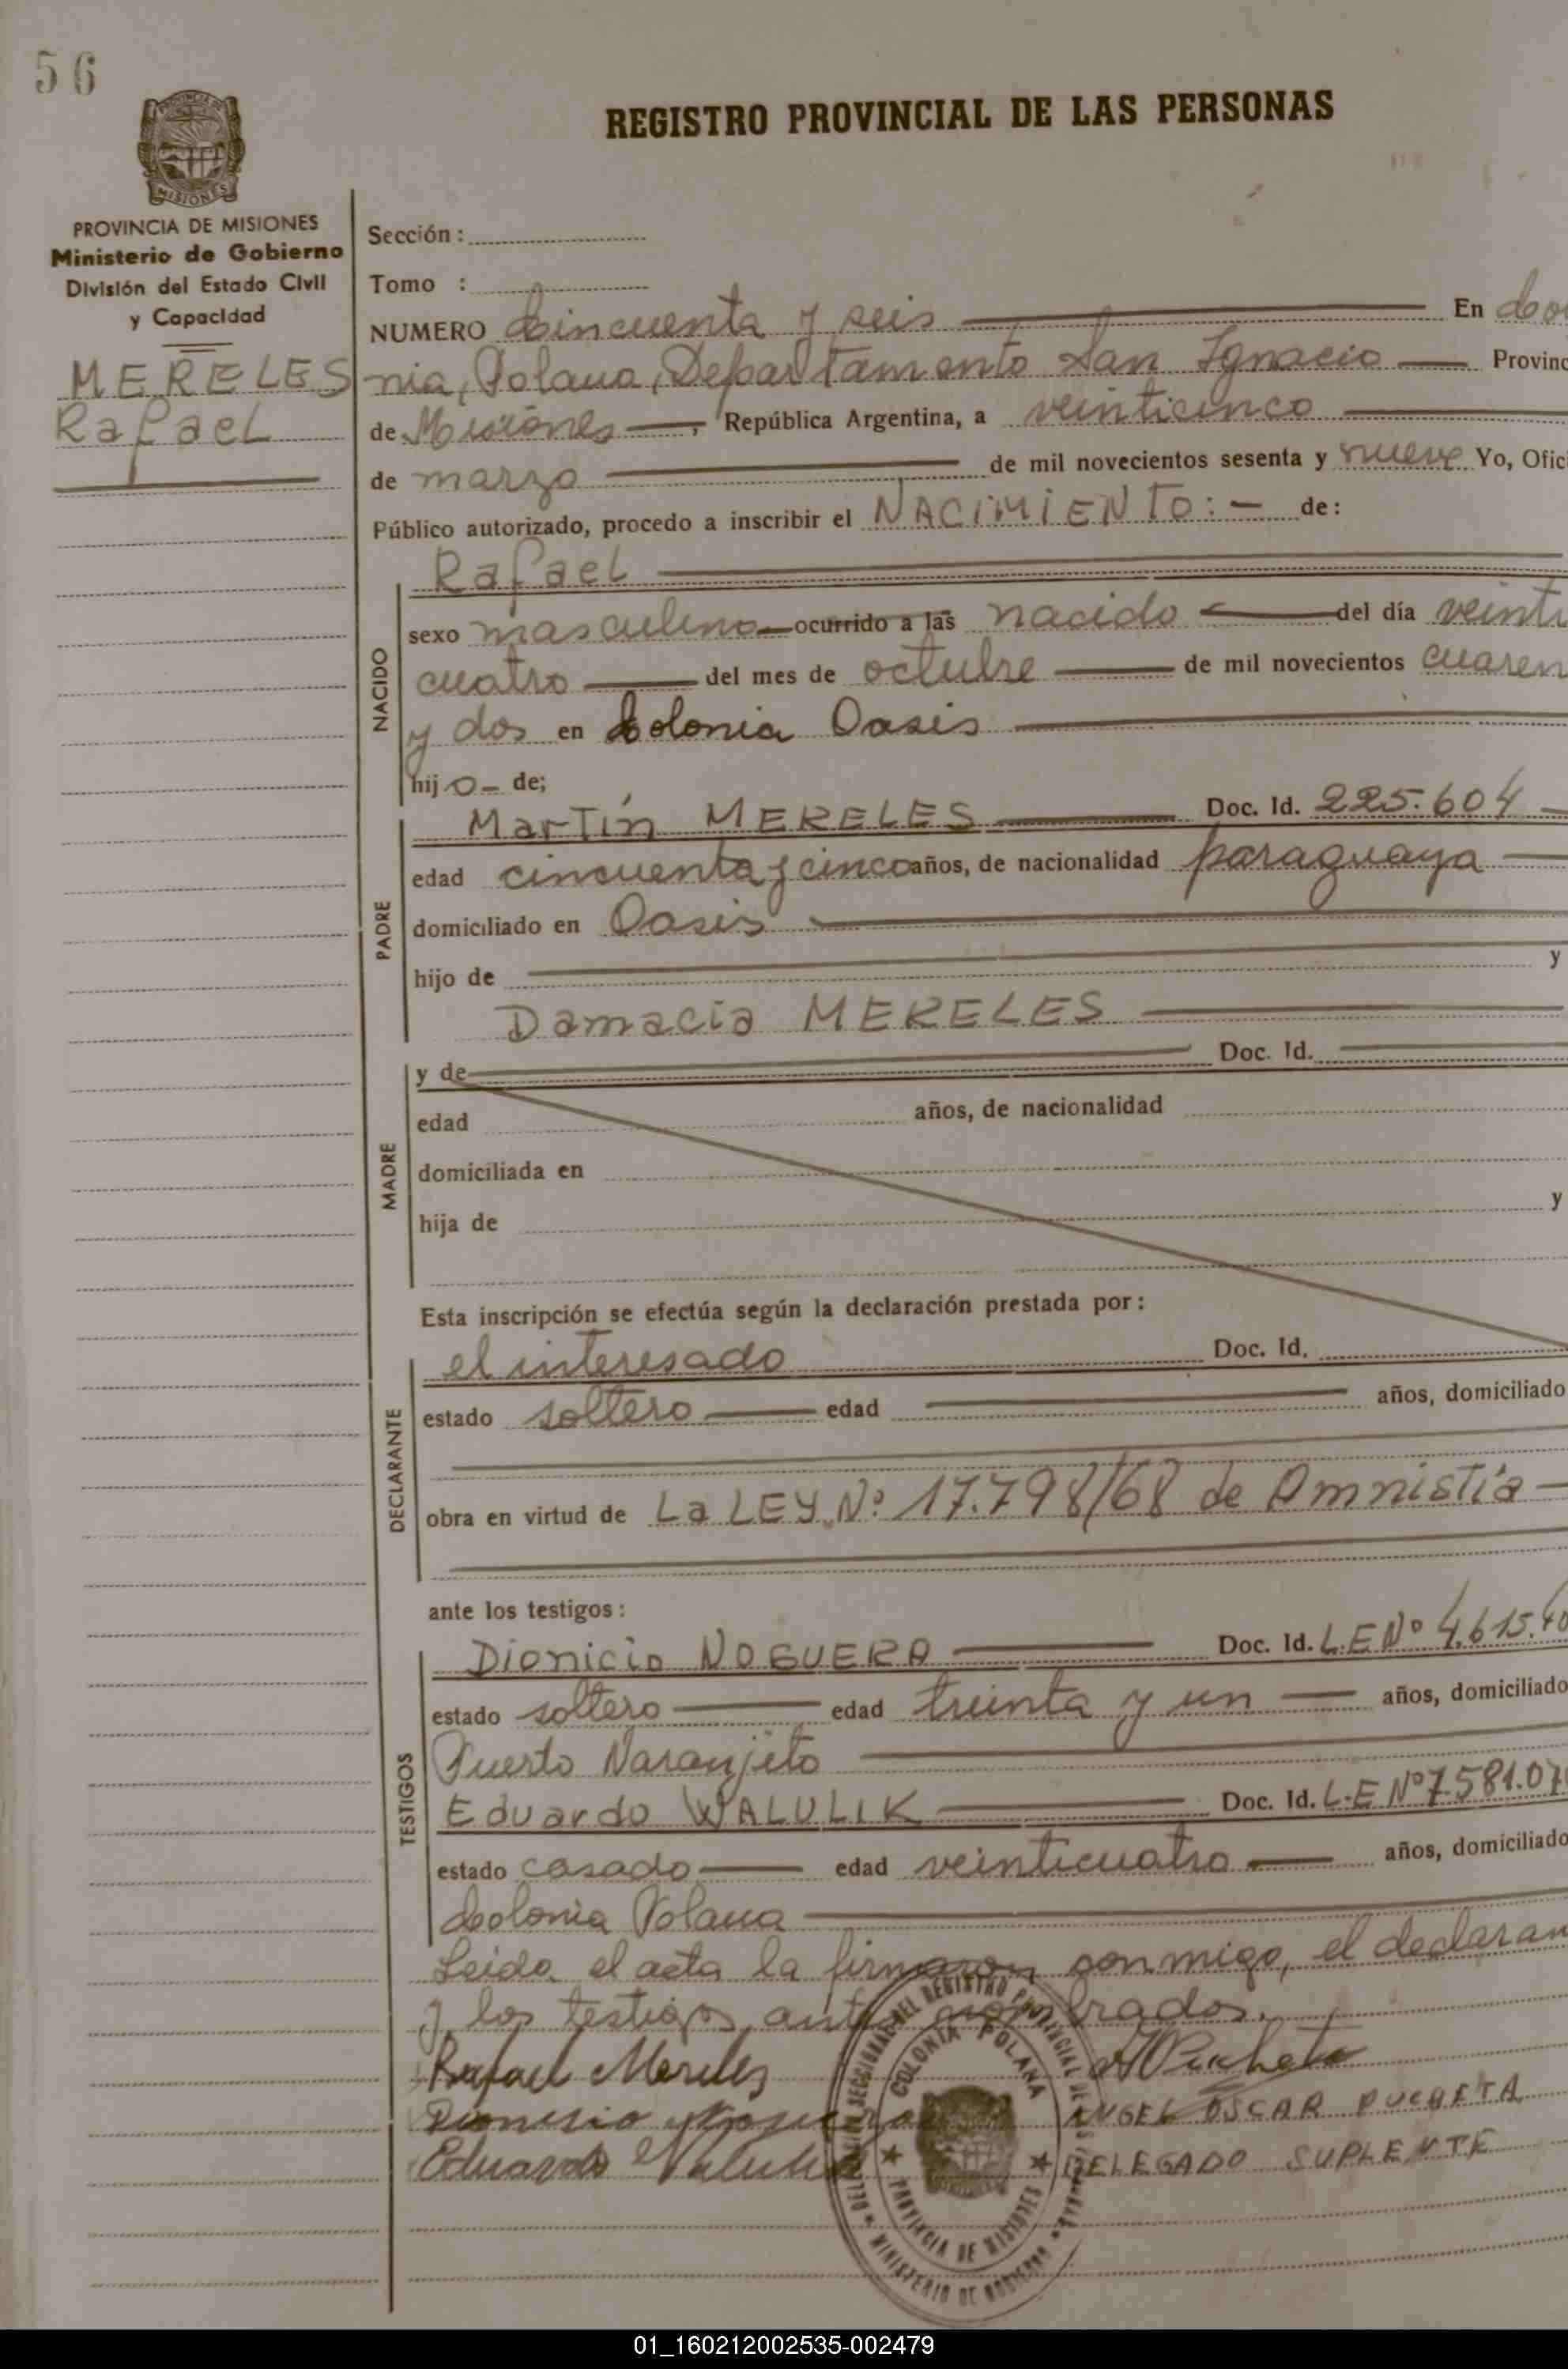 56
REGISTRO PROVINCIAL DE LAS PERSONAS
MISIONES
PROVINCIA DE MISIONES
Ministerio de Gobierno
División del Estado Civil
y Capacidad
MERELES
Rafael
Sección :
Tomo :
NUMERO Cincuenta y seis En Colo
nia, Polana, Departamento San Ignacio Provinc
de Misiones, República Argentina, a veinticinco
de marzo de mil novecientos sesenta y nueve Yo, Ofici
Público autorizado, procedo a inscribir el NACIMIENTO: - de:
NACIDO
Rafael
sexo masculino ocurrido a las nacido del día veinti
cuatro del mes de octubre de mil novecientos cuaren
y dos en Colonia Oasis
hijo - de;
PADRE
Martín MERELES Doc. Id. 225.604
edad cincuenta y cinco años, de nacionalidad paraguaya
domiciliado en Oasis
hijo de y
Damacia MERELES
MADRE
y de Doc. Id.
edad años, de nacionalidad
domiciliada en
hija de y
Esta inscripción se efectúa según la declaración prestada por:
DECLARANTE
el interesado Doc. Id.
estado soltero edad años, domiciliado
obra en virtud de La LEY Nº 17.798/68 de Amnistía
ante los testigos:
TESTIGOS
Dionicio NOGUERA Doc. Id. L.E Nº 4.615.40
estado soltero edad treinta y un años, domiciliado
Puerto Naranjito
Eduardo WALULIK Doc. Id. L.E Nº 7.581.07
estado casado edad veinticuatro años, domiciliado
Colonia Polana
Leida el acta la firmaron conmigo, el declaran
y los testigos antes nombrados.
Rafael Mereles
Dionicio Noguera
ANGEL OSCAR PUCHETA
Eduardo Walulik
DELEGADO SUPLENTE
COLONIA POLANA
PROVINCIA DE MISIONES
MINISTERIO DE GOBIERNO
01_160212002535-002479